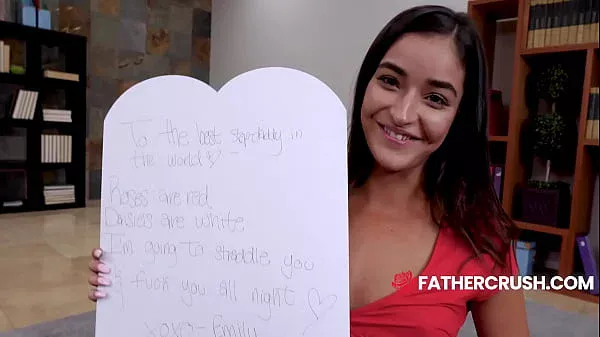 To the best stepdaddy in
the world! -
Roses are red
Daisies are white
I'm going to straddle you
& fuck you all night
xoxo - Emily
FATHERCRUSH.COM